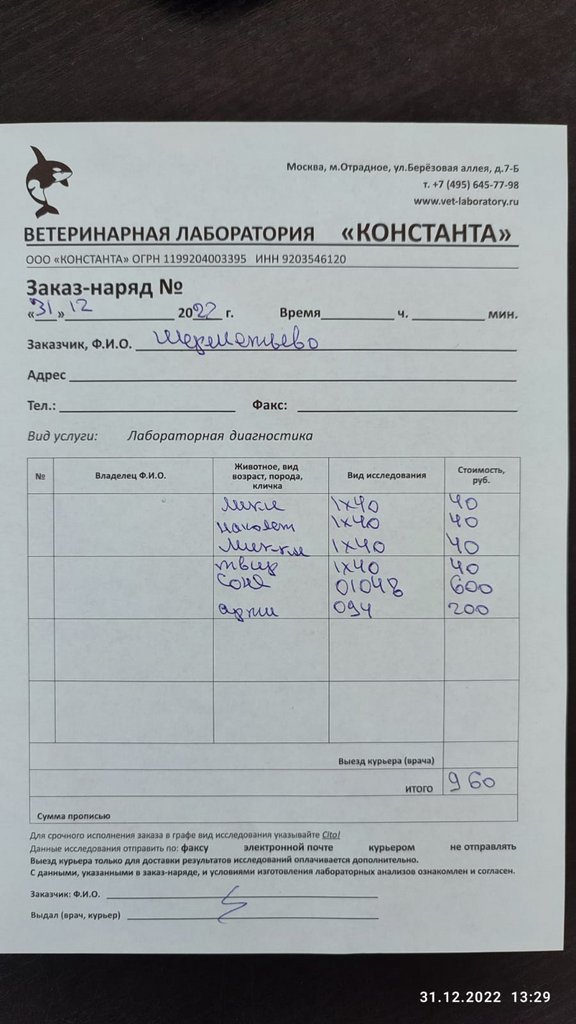 Москва, м.Отрадное, ул.Берёзовая аллея, д.7-Б
т. +7 (495) 645-77-98
www.vet-laboratory.ru
ВЕТЕРИНАРНАЯ ЛАБОРАТОРИЯ «КОНСТАНТА»
ООО «КОНСТАНТА» ОГРН 1199204003395 ИНН 9203546120
Заказ-наряд №
«31» 12 2022 г. Время ч. мин.
Заказчик, Ф.И.О. Шереметьево
Адрес
Тел.: Факс:
Вид услуги: Лабораторная диагностика
№ Владелец Ф.И.О. Животное, вид возраст, порода, кличка Вид исследования Стоимость, руб.
1х40 40
1х40 40
Микки 1х40 40
твикс 1х40 40
Соня 01048 600
арчи 094 200
Выезд курьера (врача)
ИТОГО 960
Сумма прописью
Для срочного исполнения заказа в графе вид исследования указывайте Cito!
Данные исследования отправить по: факсу электронной почте курьером не отправлять
Выезд курьера только для доставки результатов исследований оплачивается дополнительно.
С данными, указанными в заказ-наряде, и условиями изготовления лабораторных анализов ознакомлен и согласен.
Заказчик: Ф.И.О.
Выдал (врач, курьер)
31.12.2022 13:29